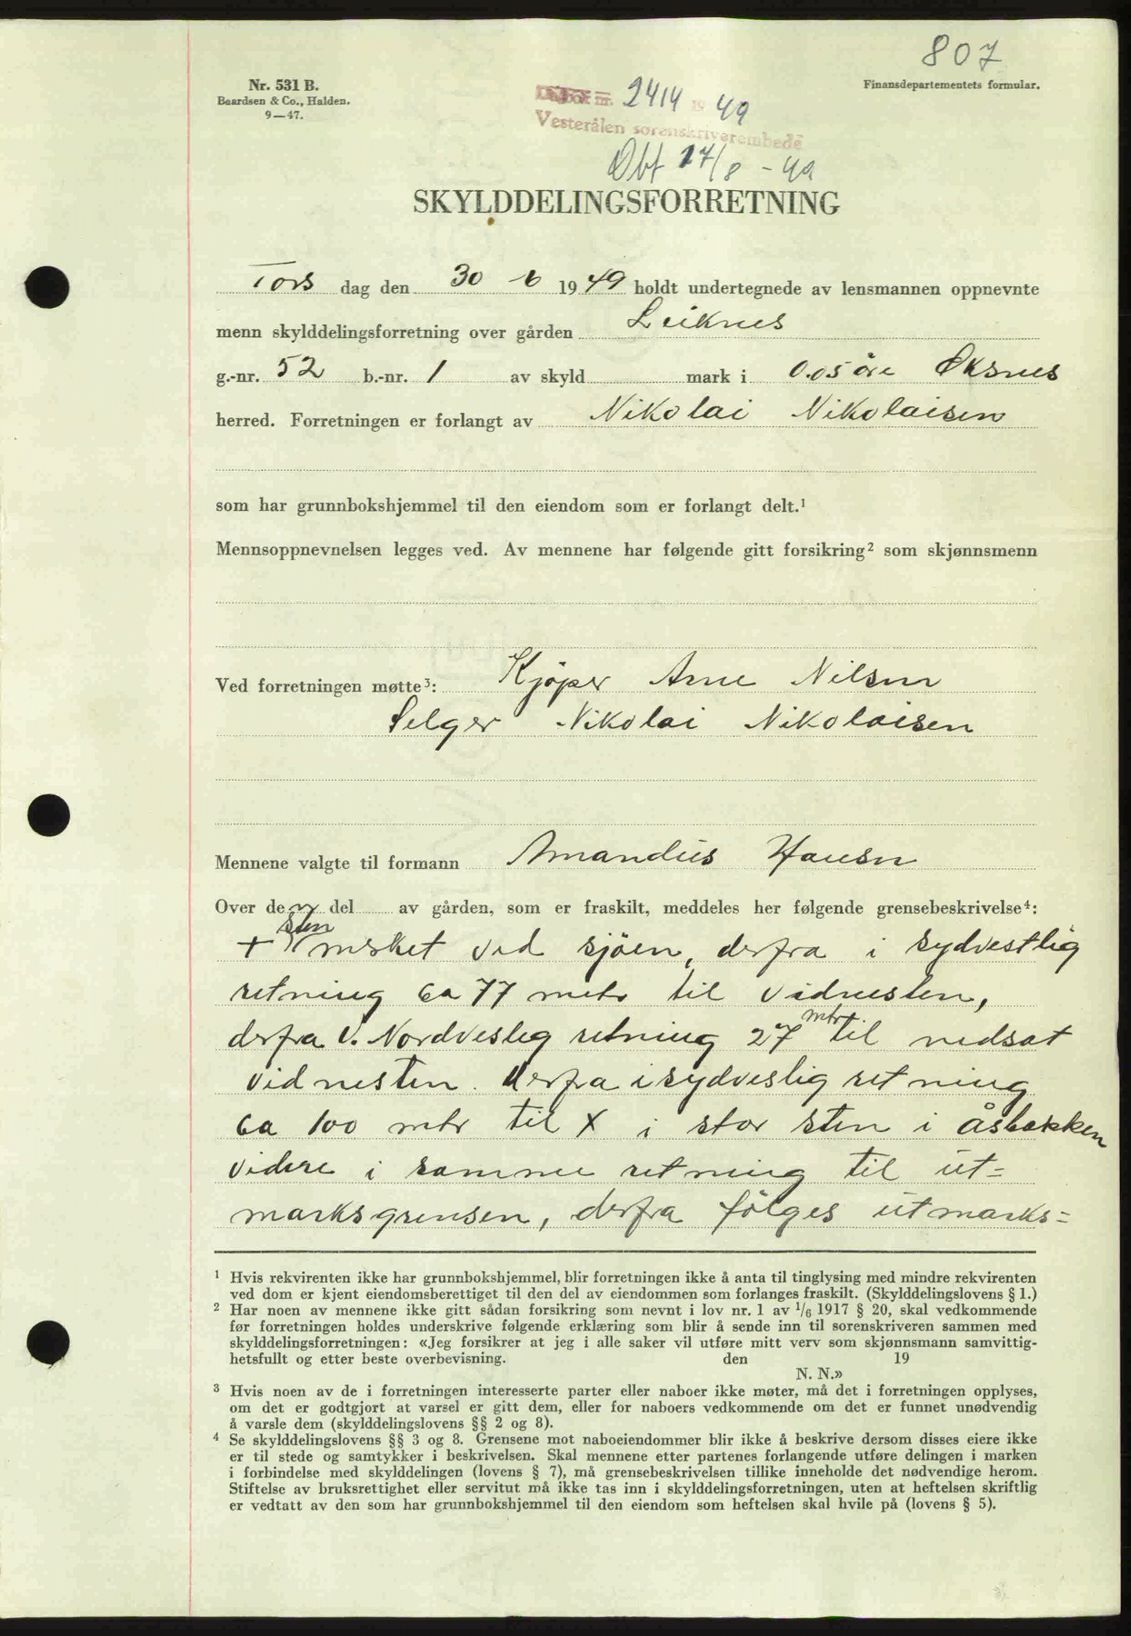 807
Nr. 531 B.
Baardsen & Co., Halden.
9—47.
Finansdepartementets formular.
Dagbok nr. 2414 19 49
Vesterålen sorenskriverembede
Dbf 17/8 - 49
SKYLDDELINGSFORRETNING
Tors dag den 30 - 6 1949 holdt undertegnede av lensmannen oppnevnte
menn skylddelingsforretning over gården Leiknes
g.-nr. 52 b.-nr. 1 av skyld mark i 0.05 öre Øksnes
herred. Forretningen er forlangt av Nikolai Nikolaisen
som har grunnbokshjemmel til den eiendom som er forlangt delt.¹
Mennsoppnevnelsen legges ved. Av mennene har følgende gitt forsikring² som skjønnsmenn
Ved forretningen møtte³: Kjøper Arne Nilsen
Selger Nikolai Nikolaisen
Mennene valgte til formann Amandus Hansn
Over den del av gården, som er fraskilt, meddeles her følgende grensebeskrivelse⁴:
+ sten merket ved sjöen, derfra i sydvestlig
retning ca 77 metr til vidnesten,
derfra i Nordveslig retning 27 mtr til nedsat
vidnesten. derfra i sydveslig retning
ca 100 mtr til X i stor sten i åsbakken
videre i samme retning til ut=
marksgrensen, derfra fölges utmarks=
¹ Hvis rekvirenten ikke har grunnbokshjemmel, blir forretningen ikke å anta til tinglysing med mindre rekvirenten
ved dom er kjent eiendomsberettiget til den del av eiendommen som forlanges fraskilt. (Skylddelingslovens § 1.)
² Har noen av mennene ikke gitt sådan forsikring som nevnt i lov nr. 1 av 1/6 1917 § 20, skal vedkommende
før forretningen holdes underskrive følgende erklæring som blir å sende inn til sorenskriveren sammen med
skylddelingsforretningen: «Jeg forsikrer at jeg i alle saker vil utføre mitt verv som skjønnsmann samvittig-
hetsfullt og etter beste overbevisning. den 19
N. N.»
³ Hvis noen av de i forretningen interesserte parter eller naboer ikke møter, må det i forretningen opplyses,
om det er godtgjort at varsel er gitt dem, eller for naboers vedkommende om det er funnet unødvendig
å varsle dem (skylddelingslovens §§ 2 og 8).
⁴ Se skylddelingslovens §§ 3 og 8. Grensene mot naboeiendommer blir ikke å beskrive dersom disses eiere ikke
er til stede og samtykker i beskrivelsen. Skal mennene etter partenes forlangende utføre delingen i marken
i forbindelse med skylddelingen (lovens § 7), må grensebeskrivelsen tillike inneholde det nødvendige herom.
Stiftelse av bruksrettighet eller servitut må ikke tas inn i skylddelingsforretningen, uten at heftelsen skriftlig
er vedtatt av den som har grunnbokshjemmel til den eiendom som heftelsen skal hvile på (lovens § 5).